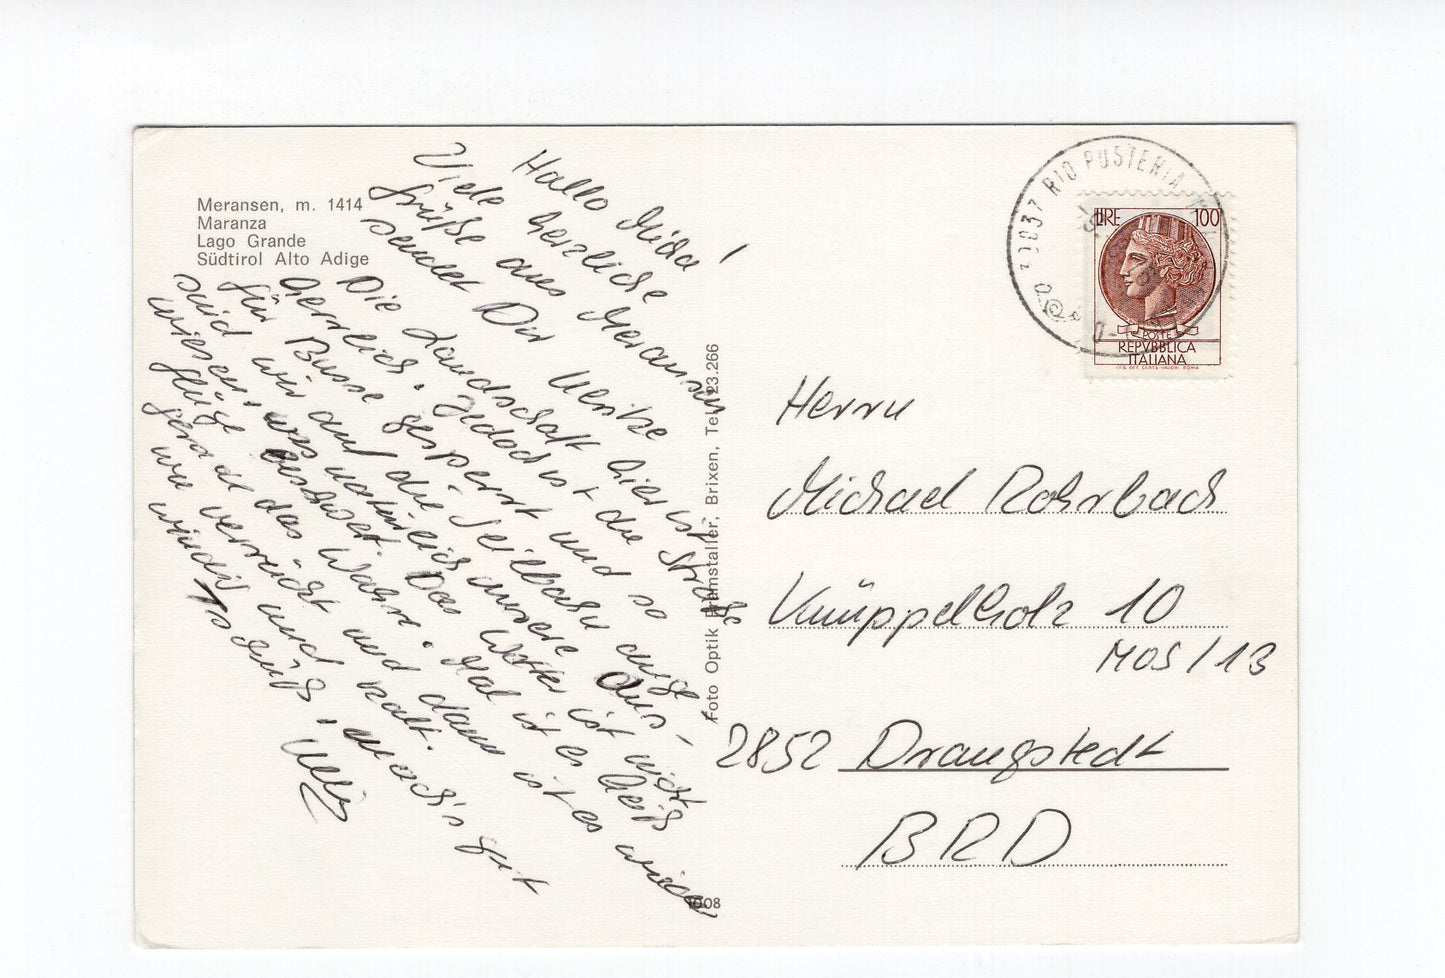 Meransen, m. 1414
Maranza
Lago Grande
Südtirol Alto Adige
Hallo Micha!
Viele herzliche
Grüße aus Meransen
sendet Dir
Die Landschaft hier ist
herrlich. Jedoch ist die Straße
für Busse gesperrt und so
sind wir auf die Seilbahn ange-
wiesen, was natürlich unsere Aus-
flüge erschwert. Das Wetter ist nicht
gerade das Wahre. Mal ist es heiß
wie verrückt und dann ist es wieder
windig und kalt.
Tschüß, mach's gut
Foto Optik Prämstaller, Brixen, Tel. 23.266
1008
39037 RIO PUSTERIA
LIRE 100
POSTE
REPVBBLICA
ITALIANA
I.P.S. OFF. CARTE-VALORI ROMA
Herrn
Michael Rohrbach
Knüppelholz 10
MOS/13
2852 Drangstedt
BRD